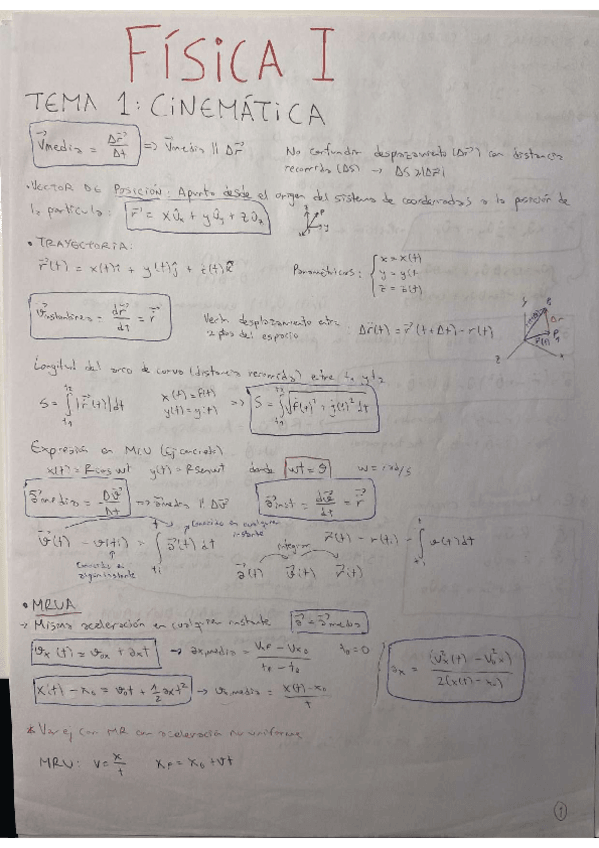 FÍSICA I
TEMA 1: CINEMÁTICA
V⃗media = Δr⃗/Δt => V⃗media || Δr⃗ No confundir desplazamiento (Δr⃗) con distancia
recorrida (ΔS) → ΔS ≥ |Δr⃗|
• VECTOR DE POSICIÓN: Apunta desde el origen del sistema de coordenadas a la posición de
la partícula: r⃗ = x û + y û + z û
• TRAYECTORIA:
r⃗(t) = x(t)î + y(t)ĵ + z(t)k̂ Paramétricas: { x = x(t)
y = y(t
z = z(t)
v⃗instantánea = dr⃗/dt = r⃗˙ desplazamiento entre Δr⃗(t) = r⃗(t+Δt) - r(t)
2 ptos del espacio
Longitud del arco de curva (distancia recomida) entre t₁ y t₂
S = ∫ |r⃗˙(t)| dt x(t) = f(t) => S = ∫ √ẋ(t)² + ẏ(t)² dt
y(t) = y(t)
Expresión en MCU (Ej concreto)
x(t) = R cos wt y(t) = R sen wt donde wt = θ w = rad/s
a⃗media = Δv⃗/Δt => a⃗media || Δv⃗ a⃗inst = dv⃗/dt = r⃗¨
conocido en cualquier
instante
v⃗(t) - v(ti) = ∫ a⃗(t) dt integrar r⃗(t) - r(ti) = ∫ v(t) dt
conocido en
algún instante
a⃗(t) v⃗(t) r⃗(t)
• MRUA
→ Misma aceleración en cualquier instante a⃗ = a⃗media
vx(t) = v0x + axt → axmedia = (Vxf - Vx0)/(tf - t0) t0 = 0
ax = (Vx²(t) - V0²x)/(2(x(t) - x0))
x(t) - x0 = v0t + 1/2 axt² → vxmedia = (x(t) - x0)/t
* Ver ej con MR con aceleración no uniforme
MRU: v = x/t xf = x0 + vt
1